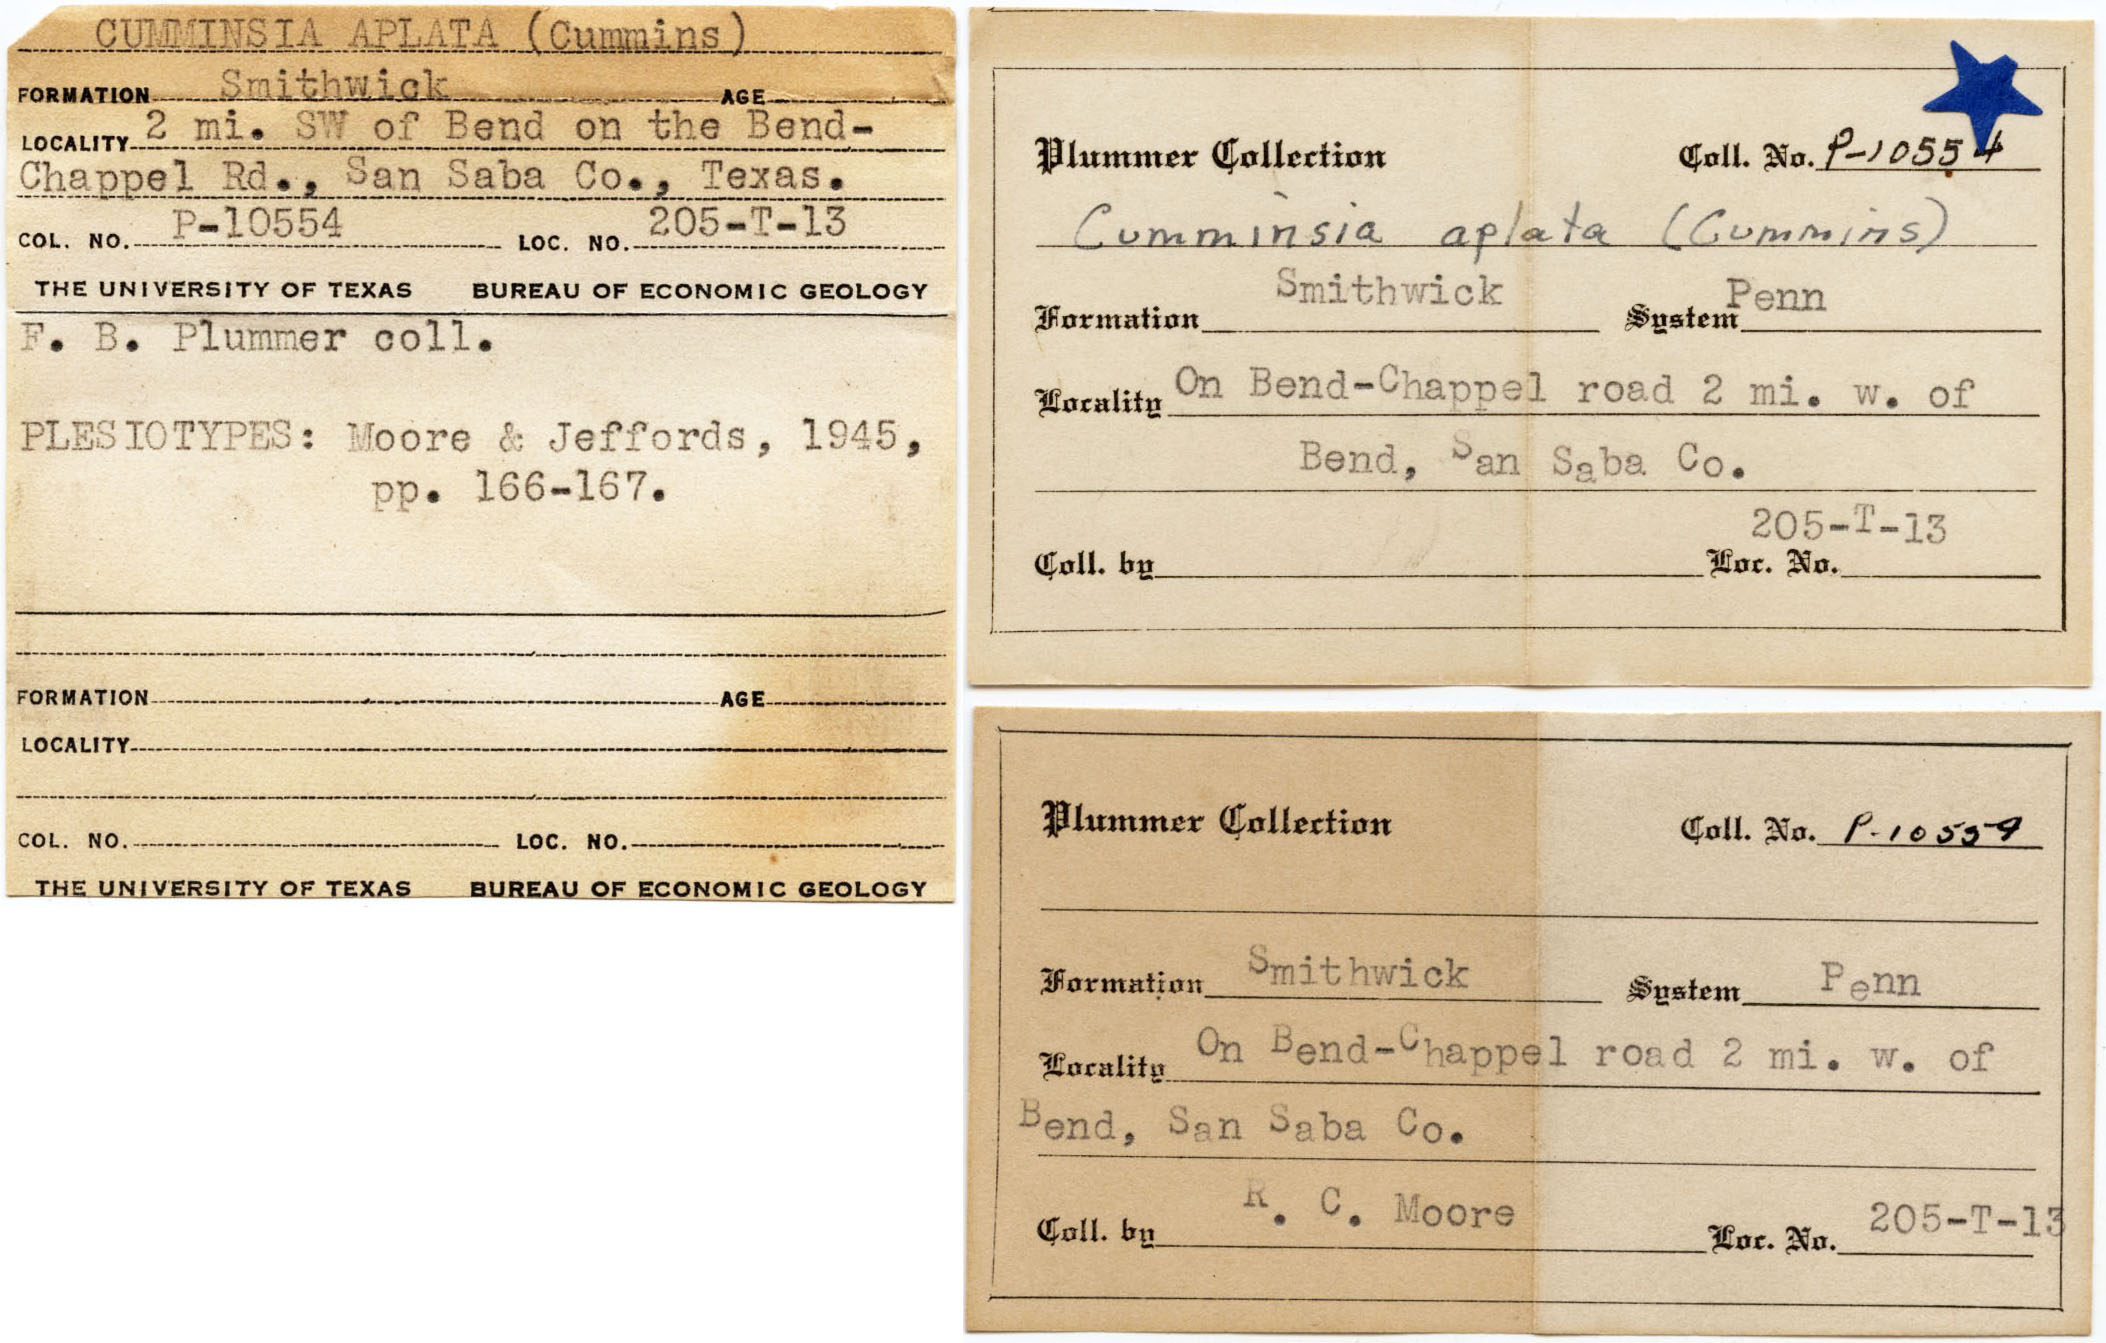 CUMMINSIA APLATA (Cummins)
FORMATION Smithwick AGE
LOCALITY 2 mi. SW of Bend on the Bend-
Chappel Rd., San Saba Co., Texas.
COL. NO. P-10554 LOC. NO. 205-T-13
THE UNIVERSITY OF TEXAS BUREAU OF ECONOMIC GEOLOGY
F. B. Plummer coll.
PLESIOTYPES: Moore & Jeffords, 1945,
pp. 166-167.
FORMATION AGE
LOCALITY
COL. NO. LOC. NO.
THE UNIVERSITY OF TEXAS BUREAU OF ECONOMIC GEOLOGY
Plummer Collection Coll. No. P-10554
Cumminsia aplata (Cummins)
Formation Smithwick System Penn
Locality On Bend-Chappel road 2 mi. w. of
Bend, San Saba Co.
Coll. by Loc. No. 205-T-13
Plummer Collection Coll. No. P-10554
Formation Smithwick System Penn
Locality On Bend-Chappel road 2 mi. w. of
Bend, San Saba Co.
Coll. by R. C. Moore Loc. No. 205-T-13